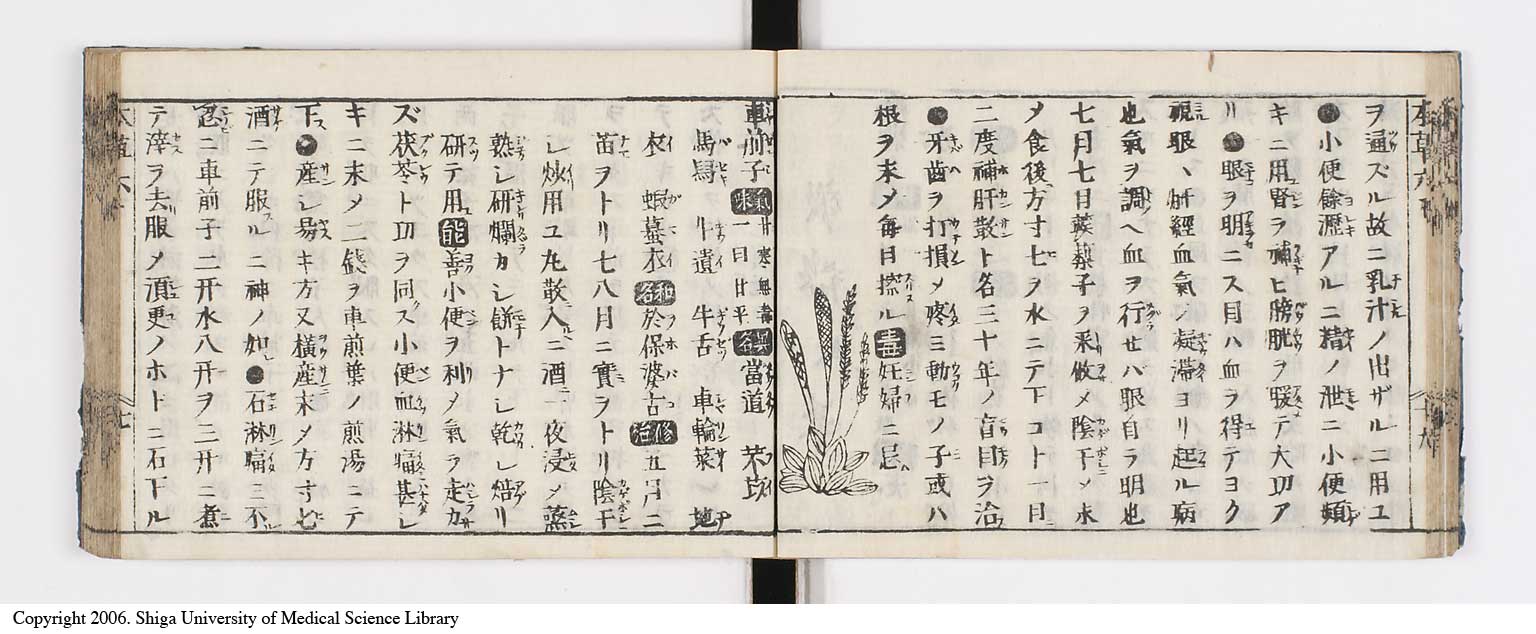 ヲ通ズル故ニ乳汁ノ出ザルニ用ユ
●小便餘瀝アルニ精ノ泄ニ小便頻
キニ用腎ヲ補ヒ膀胱ヲ暖テ大切ア
リ●眼ヲ明ニス目ハ血ヲ得テヨク
視眼、肝經血氣ノ凝滞ヨリ起ル病
也氣ヲ調ヘ血ヲ行セハ眼自ラ明也
七月七日蒺蔾子ヲ采收メ陰干メ末
メ食後方寸七ヲ水ニテ下コト一日
二度補肝散ト名三十年ノ盲目ヲ治
●牙歯ヲ打損メ疼ミ動モノ子或ハ
根ヲ末メ毎日擦ル毒妊婦ニ忌
車前子氣味甘寒無毒一曰甘平異名當道 芣苡
馬舄 牛遺 牛舌 車輪菜 地
衣 蝦蟇衣和名於保婆古修治五月ニ
苗ヲトリ七八月ニ實ヲトリ陰干
レ炒用ユ丸散入ニ酒一夜浸メ蒸
熟レ研爛カシ餅トナレ乾レ焙リ
研テ用能善小便ヲ利メ氣ラ走カ
ズ茯苓ト功ヲ同ス小便血淋痛甚レ
キニ末メ二錢ヲ車前葉ノ煎湯ニテ
下ス●産レ易キ方又横産末メ方寸七
酒ニテ服ルニ神ノ如●石淋痛ニ不
忍ニ車前子二升水八升ヲ三升ニ煮
テ滓ヲ去服メ須更ノホトニ石下ル